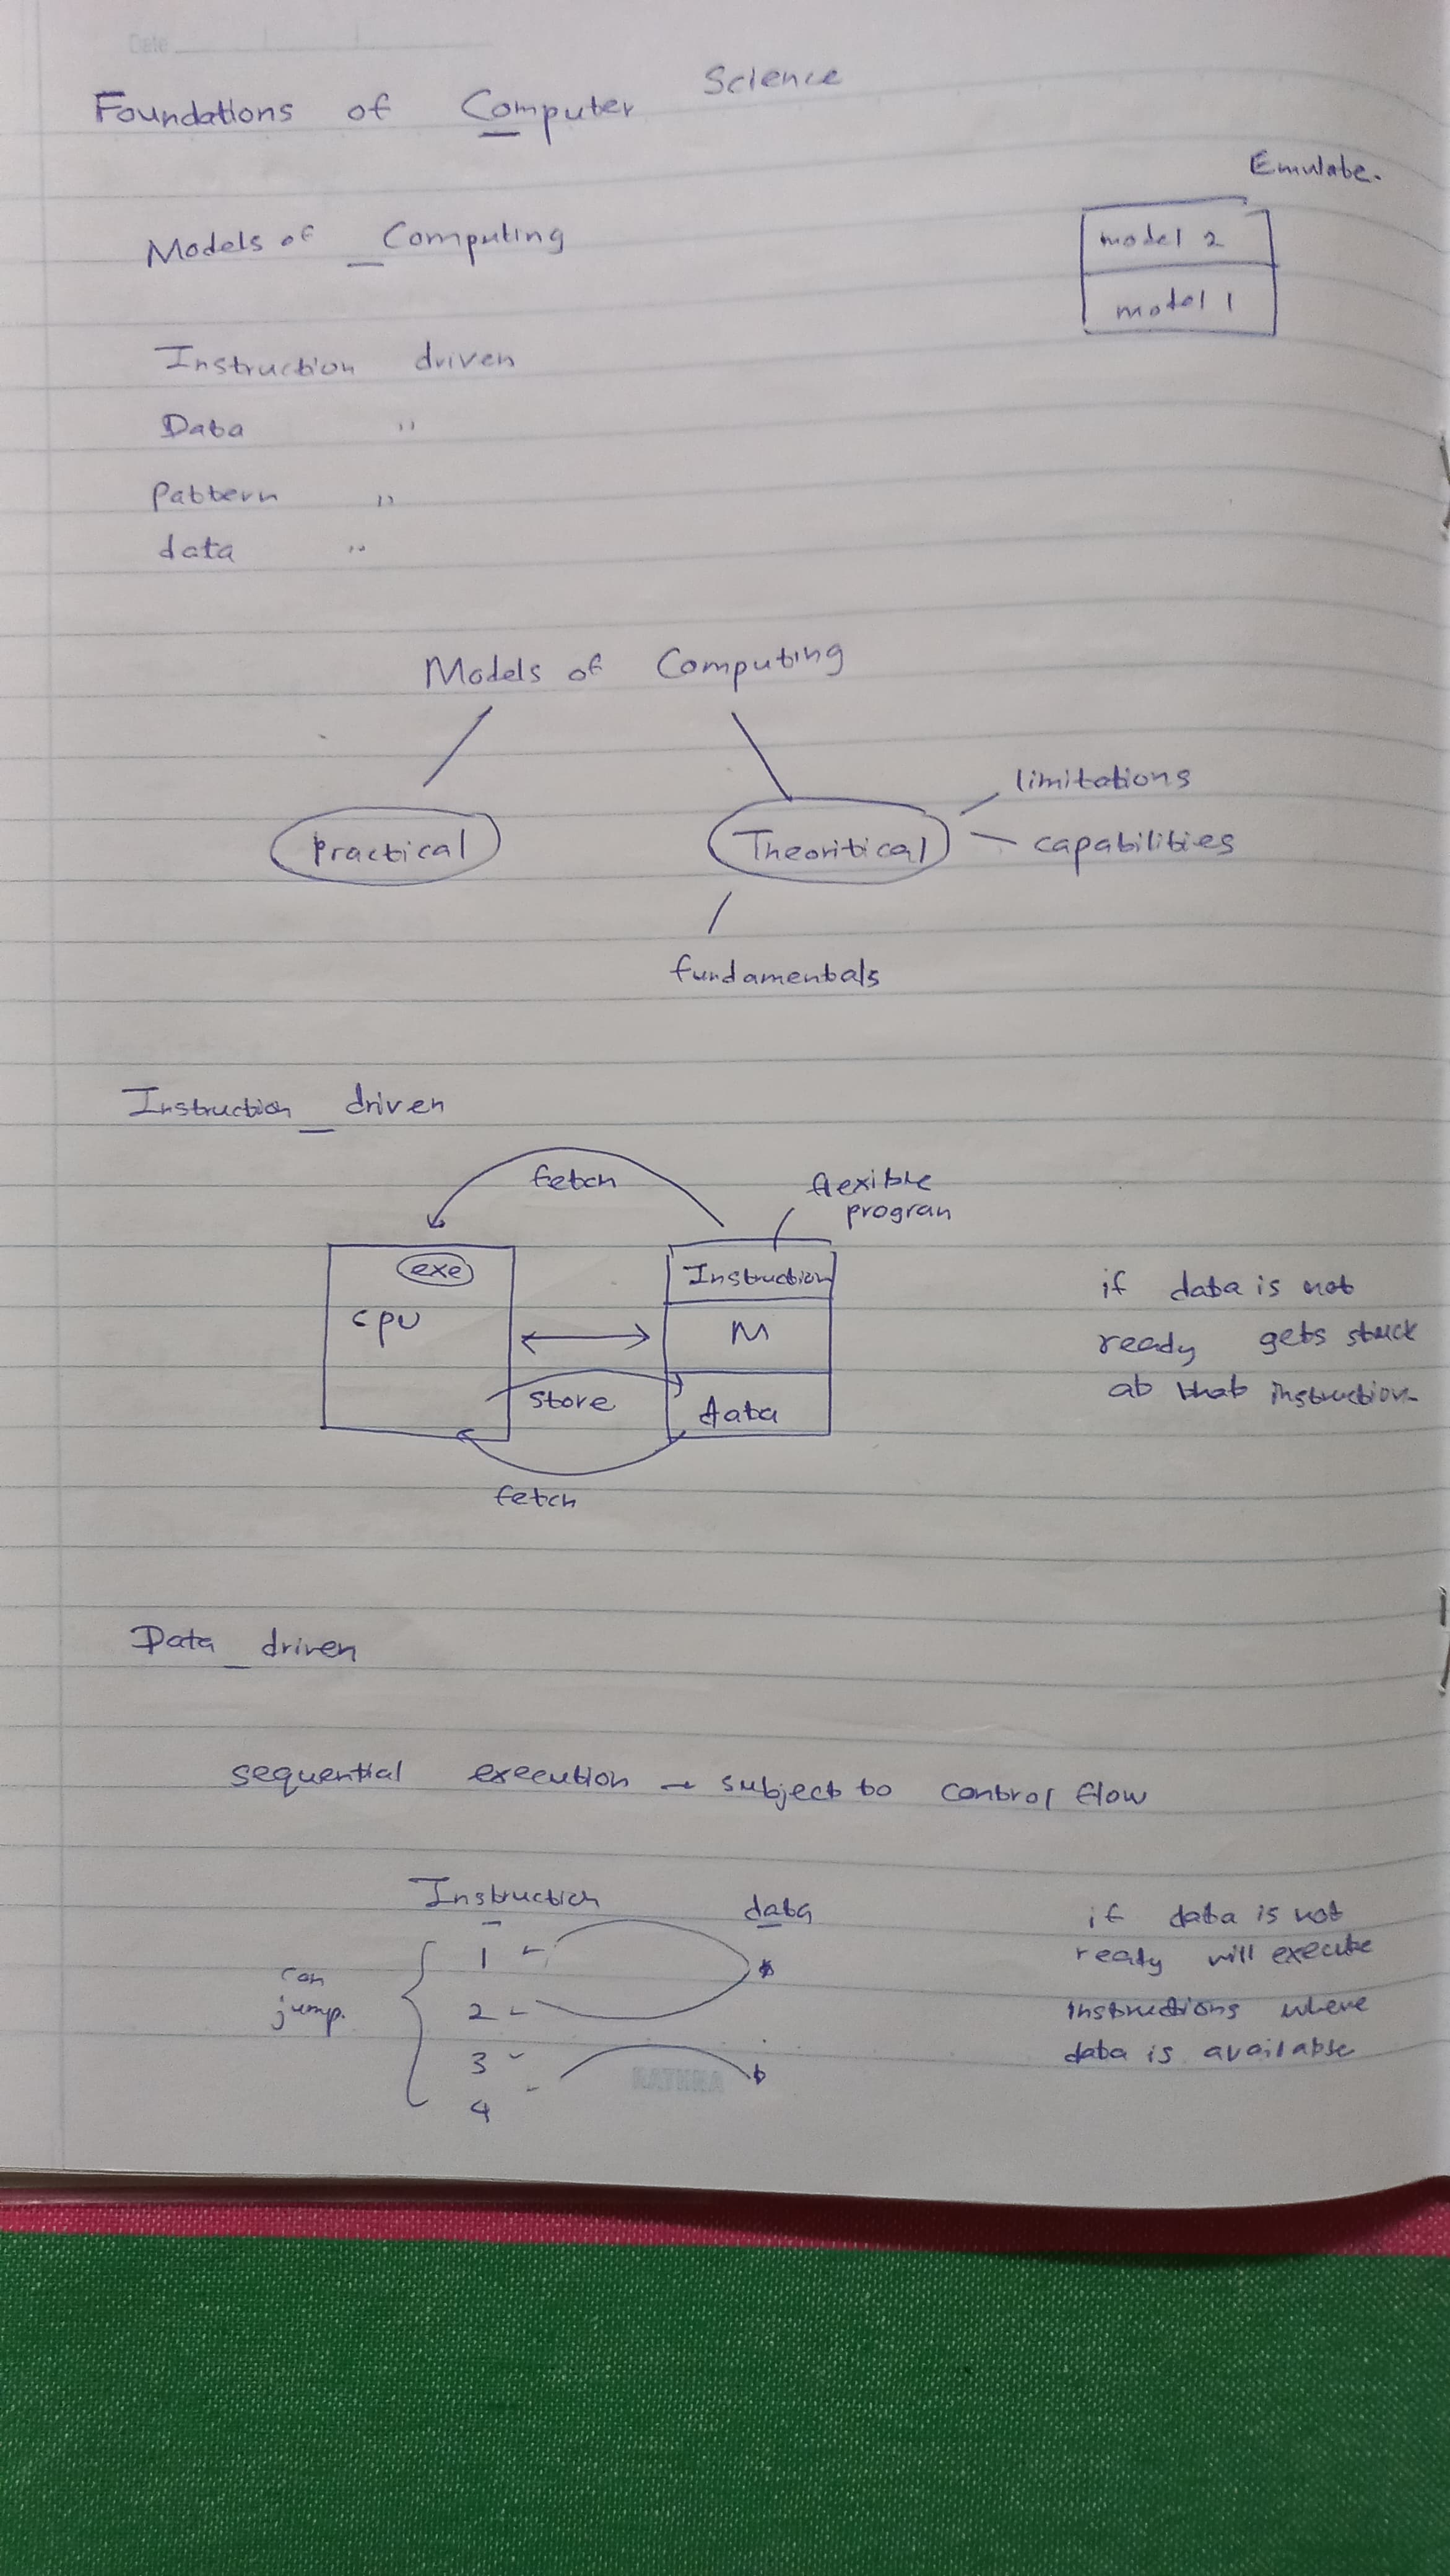 Date
Foundations of Computer Science
Emulate.
model 2
model 1
Models of Computing
Instruction driven
Data "
pattern "
data "
Models of Computing
Practical
Theoritical
limitations
capabilities
fundamentals
Instruction driven
fetch
flexible
program
exe
cpu
Instruction
M
data
store
fetch
if data is not
ready gets stuck
at that instruction
Data driven
sequential execution → subject to control flow
Instruction
data
can
jump.
1
2
3
4
if data is not
ready will execute
instructions where
data is available
RATHNA